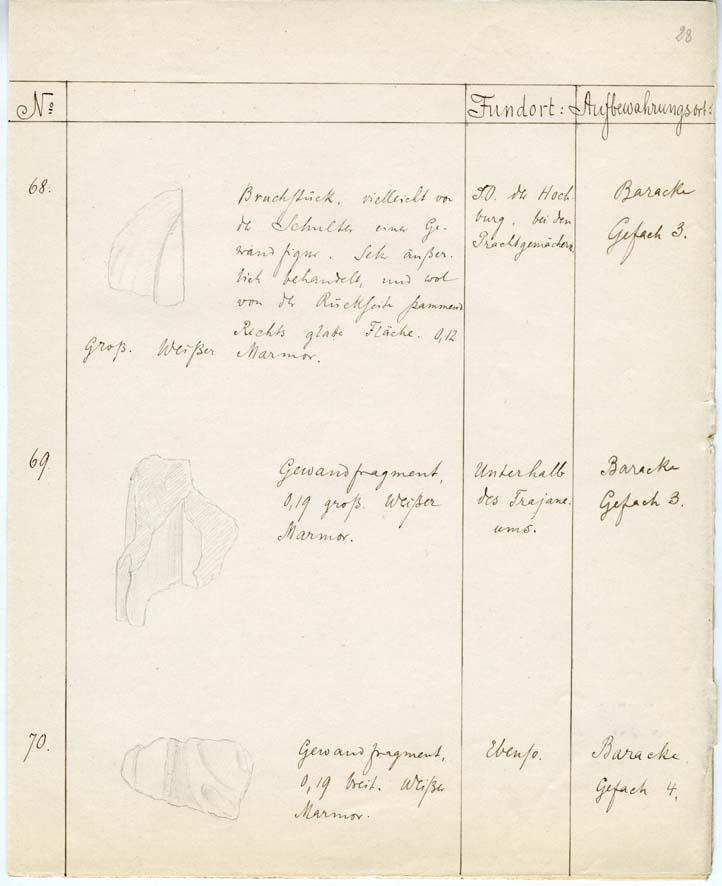 28
No Fundort: Aufbewahrungsort:
68.
Bruchstück, vielleicht von
der Schulter einer Ge-
wandfigur. Sehr äußer-
lich behandelt, und wol
von der Rückseite stammend
Rechts glatte Fläche. 0,12
Groß. Weißer Marmor.
SO. der Hoch-
burg, bei den
Prachtgemächern
Baracke
Gefach 3.
69.
Gewandfragment,
0,19 groß. Weißer
Marmor.
Unterhalb
des Trajane-
ums.
Baracke
Gefach 3.
70.
Gewandfragment,
0,19 breit. Weißer
Marmor.
Ebenso.
Baracke
Gefach 4.